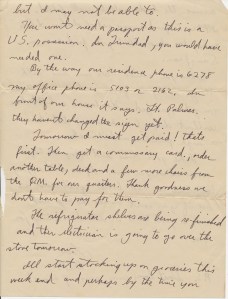 but I may not be able to.
You won't need a passport as this is a
U.S. possession. In Trinidad, you would have
needed one.
By the way our residence phone is 6278
my office phone is 5103 or 2162. In
front of our house it says. Lt. Palmer.
they haven't changed the sign yet.
Tomorrow I must get paid! thats
first. Then get a commissary card, order
another table, desk and a few more chairs from
the QM. for our quarters. Thank goodness we
dont have to pay for them.
The refrigerator shelves are being re-finished
and the electrician is going to go over the
stove tomorrow.
I'll start stocking up on groceries this
week end and perhaps by the time you